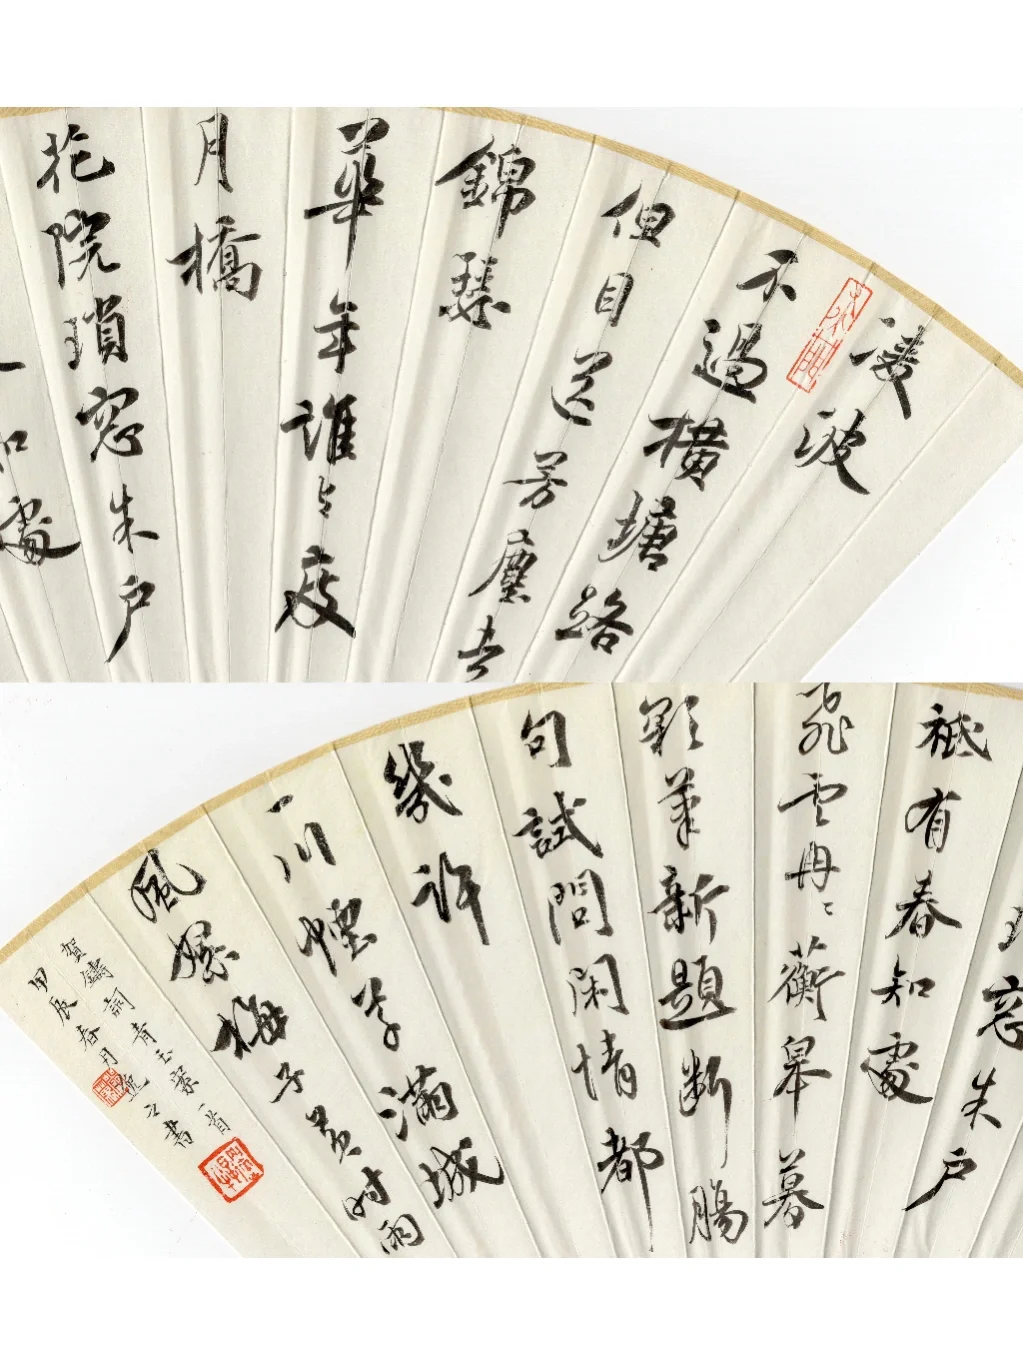 凌波
不過橫塘路
但目送芳塵去
錦瑟
華年誰与度
月橋
花院瑣窓朱户
知處
窓朱户
祇有春知處
飛雲冉〻蘅皋暮
彩筆新題斷腸
句試問閑情都
幾許
一川煙草滿城
風絮梅子黃時雨
賀鑄詞青玉案一首
甲辰春月之書